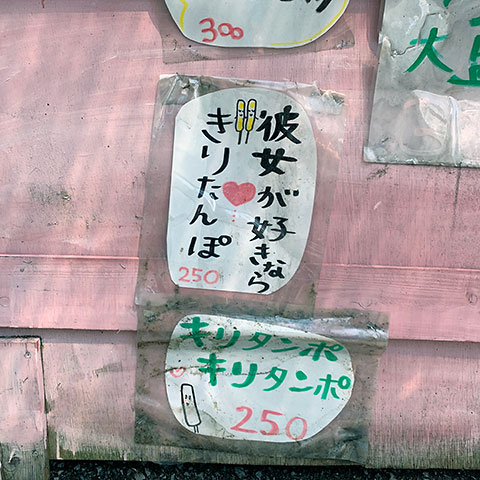 300
大
彼女が好きなら
きりたんぽ
250
キリタンポ
キリタンポ
250